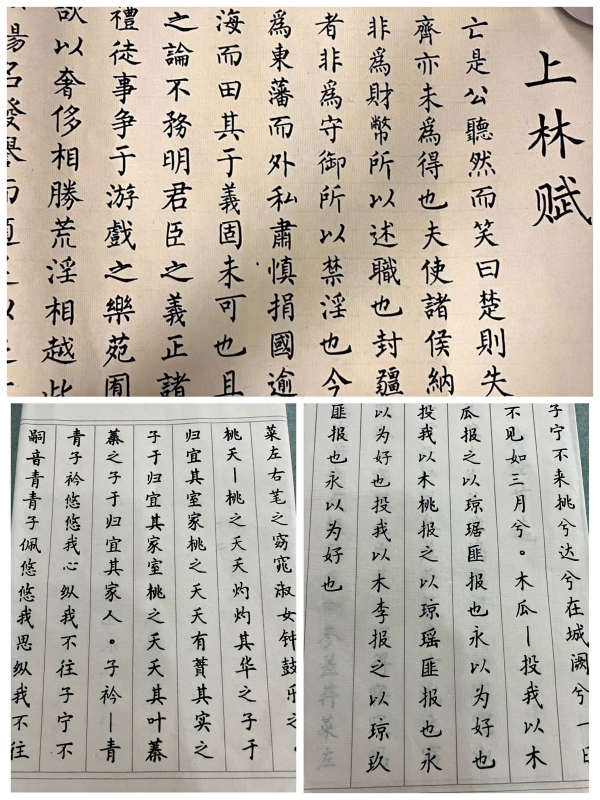 上林赋
亡是公聽然而笑曰楚則失
齊亦未爲得也夫使諸侯納
非爲財幣所以述職也封疆
者非爲守御所以禁淫也今
爲東藩而外私肅慎捐國逾
海而田其于義固未可也且
之論不務明君臣之義正諸
禮徒事争于游戲之樂苑囿
欲以奢侈相勝荒淫相越此
名發譽而
菜左右芼之窈窕淑女钟鼓乐之。
桃夭—桃之夭夭灼灼其华之子于
归宜其室家桃之夭夭有蕡其实之
子于归宜其家室桃之夭夭其叶蓁
蓁之子于归宜其家人。子衿—青
青子衿悠悠我心纵我不往子宁不
嗣音青青子佩悠悠我思纵我不往
子宁不来挑兮达兮在城阙兮一日
不见如三月兮。木瓜—投我以木
瓜报之以琼琚匪报也永以为好也
投我以木桃报之以琼瑶匪报也永
以为好也投我以木李报之以琼玖
匪报也永以为好也